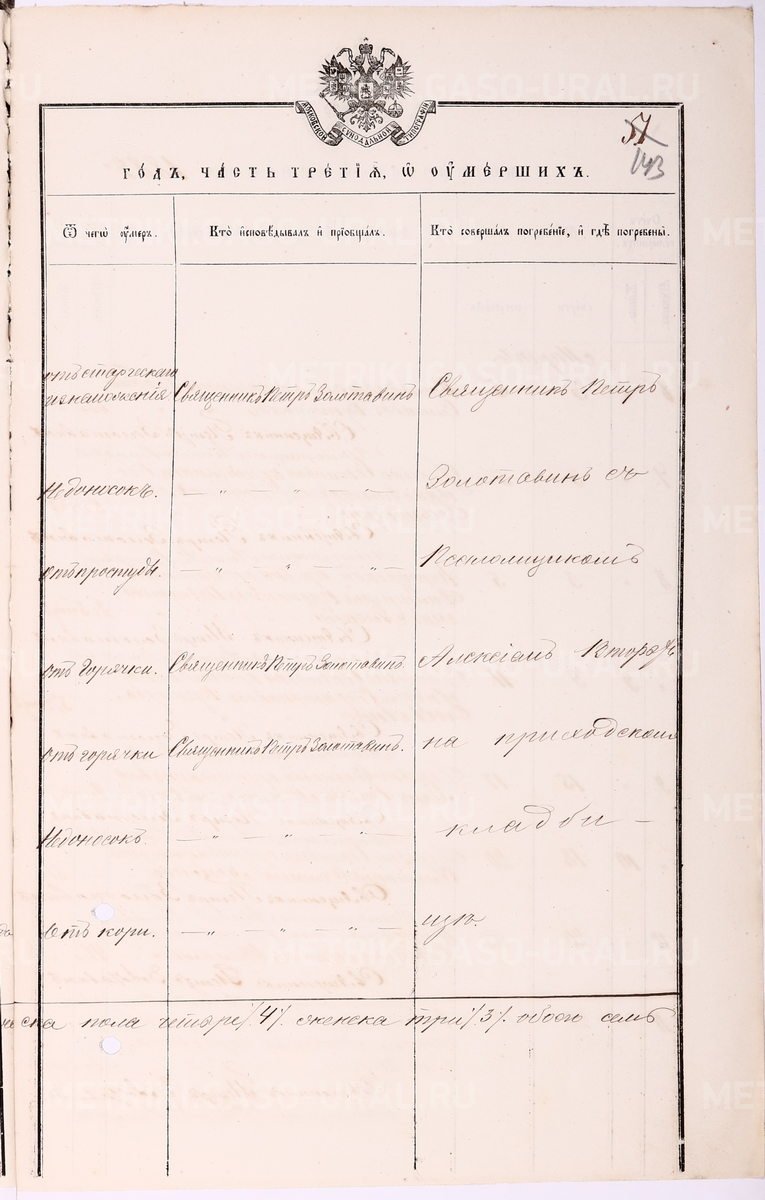 МОСКОВСКОЙ СѴНОДАЛЬНОЙ ТИПОГРАФІИ
57
143
ГО́ДЪ, ЧА́СТЬ ТРЕ́ТІѦ, Ѡ҆ ОУ҆МЕ́РШИХЪ.
Ѿ чегѡ̀ оу҆́меръ.
Кто̀ и҆сповѣ́дывалъ и҆ прїѡбща́лъ.
Кто̀ соверша́лъ погребе́нїе, и҆ гдѣ̀ погребены̀.
отъ старческаго
изнеможенія Священникъ Петръ Золотавинъ Священникъ Петръ
Недоносокъ. — „ — „ — „ — Золотавинъ съ
отъ простуды. — „ — „ — „ — Псаломщикомъ
отъ горячки. Священникъ Петръ Золотавинъ.
отъ горячки Священникъ Петръ Золотавинъ. на приходскомъ
Недоносокъ. — „ — „ — „ — кладби-
Отъ кори. — „ — „ — „ — щѣ.
ска пола четыре /4/. женска три /3/. обоего семь
METRIKI.GASO-URAL.RU